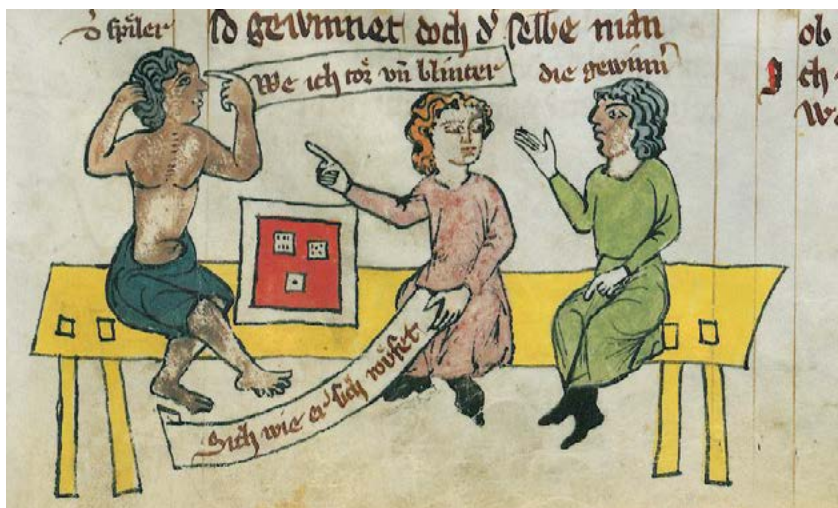 d' spiler
so gewinnet doch d' selbe man
ob
We ich tor vn̄ blinter
die gewinn'
ch
Wa
Sich wie er sich roͮfet